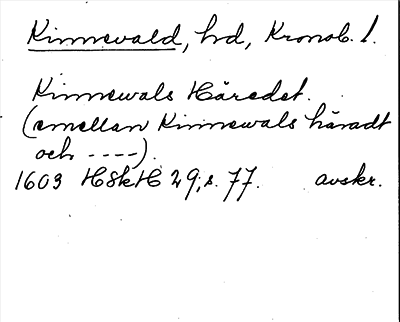 Kinnevald, hd, Kronob. l.
Kinnewals Häredet.
(emellan Kinnewals häradt
och ----).
1603 HSkH 29, s. 77. avskr.